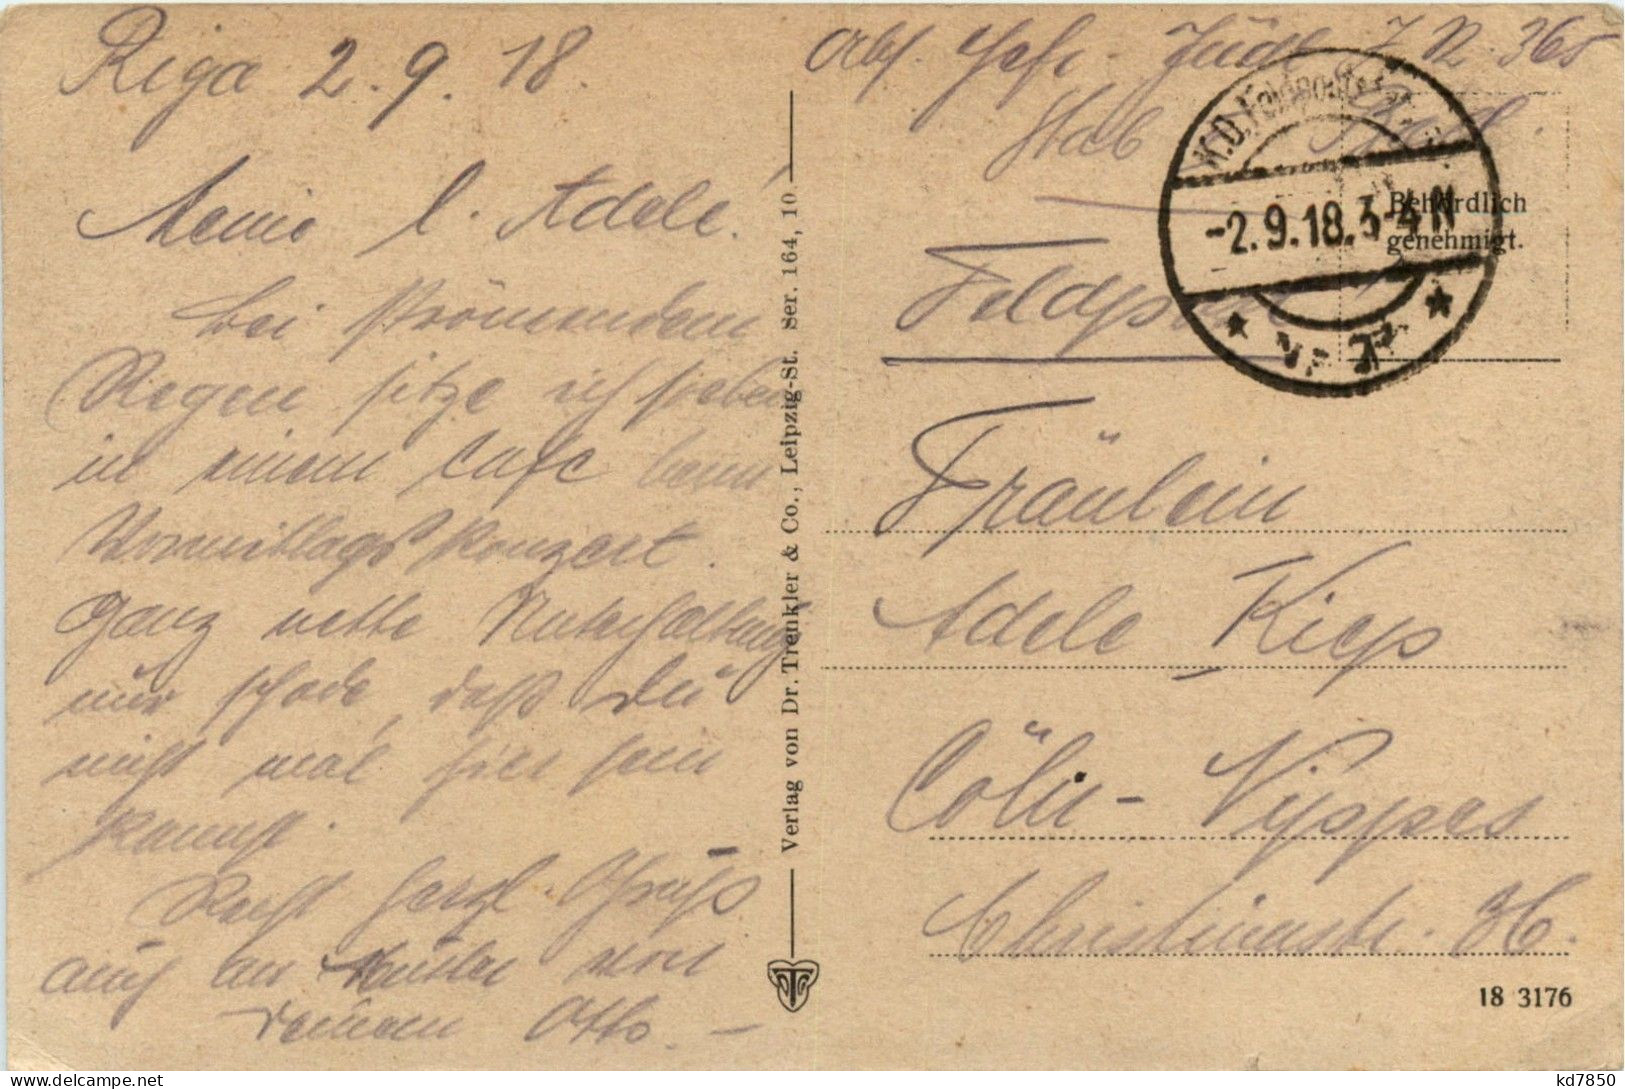 Riga 2.9.18.
Meine l. Adele!
bei strömendem
Regen sitze ich soeben
in einem Café beim
Vormittagskonzert.
Ganz nette Unterhaltung
nur schade, daß Du
nicht mal hier sein
kannst.
Recht herzl. Grüße
auch an Mutter von
Deinem Otto. –
Verlag von Dr. Trenkler & Co., Leipzig-St. Ser. 164, 10.
Abs. Gefr. J.R. 365
Stab
K.D. Feldpost
-2.9.18. 3-4 N
Behördlich
genehmigt.
Feldpost
Fräulein
Adele Kiep
Cöln-Nippes
Christinastr. 36.
18 3176
kd7850